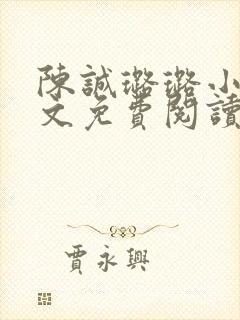 陳誠璐璐小
文免費閱讀
賈永興